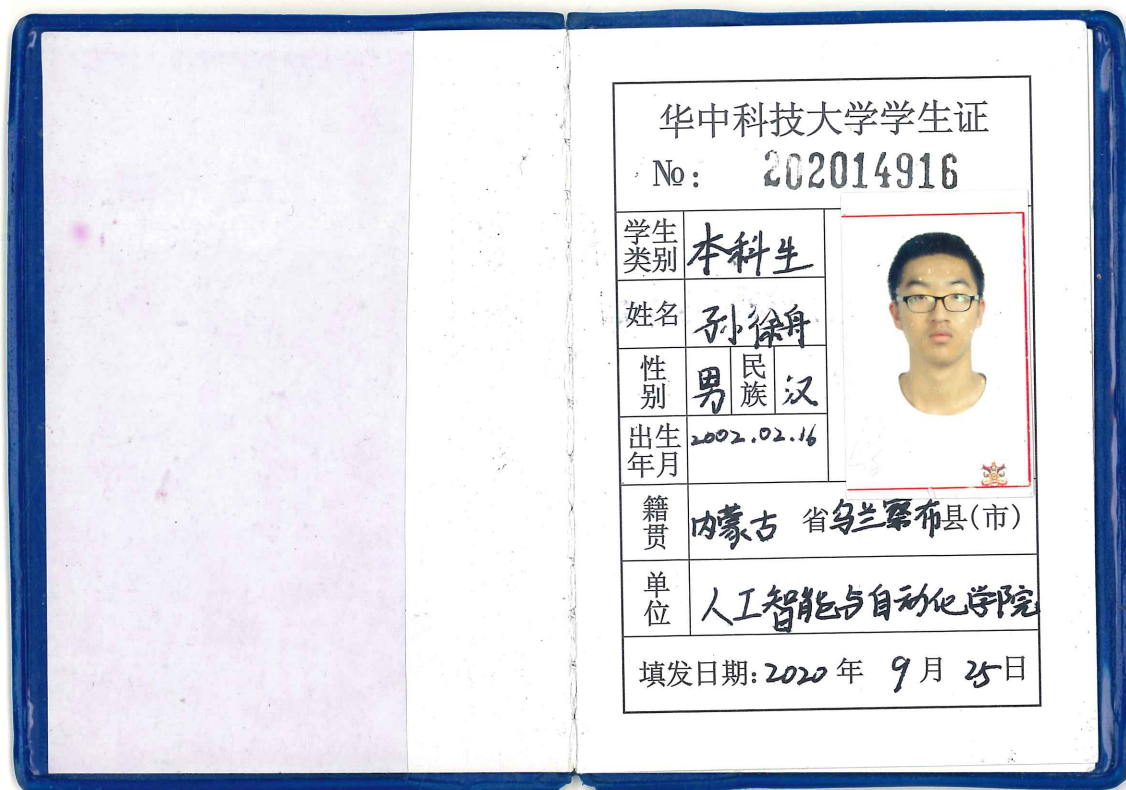 华中科技大学学生证
№: 202014916
学生类别 本科生
姓名 孙徐舟
性别 男 民族 汉
出生年月 2002.02.16
籍贯 内蒙古 省乌兰察布县(市)
单位 人工智能与自动化学院
填发日期:2020年 9月 25日